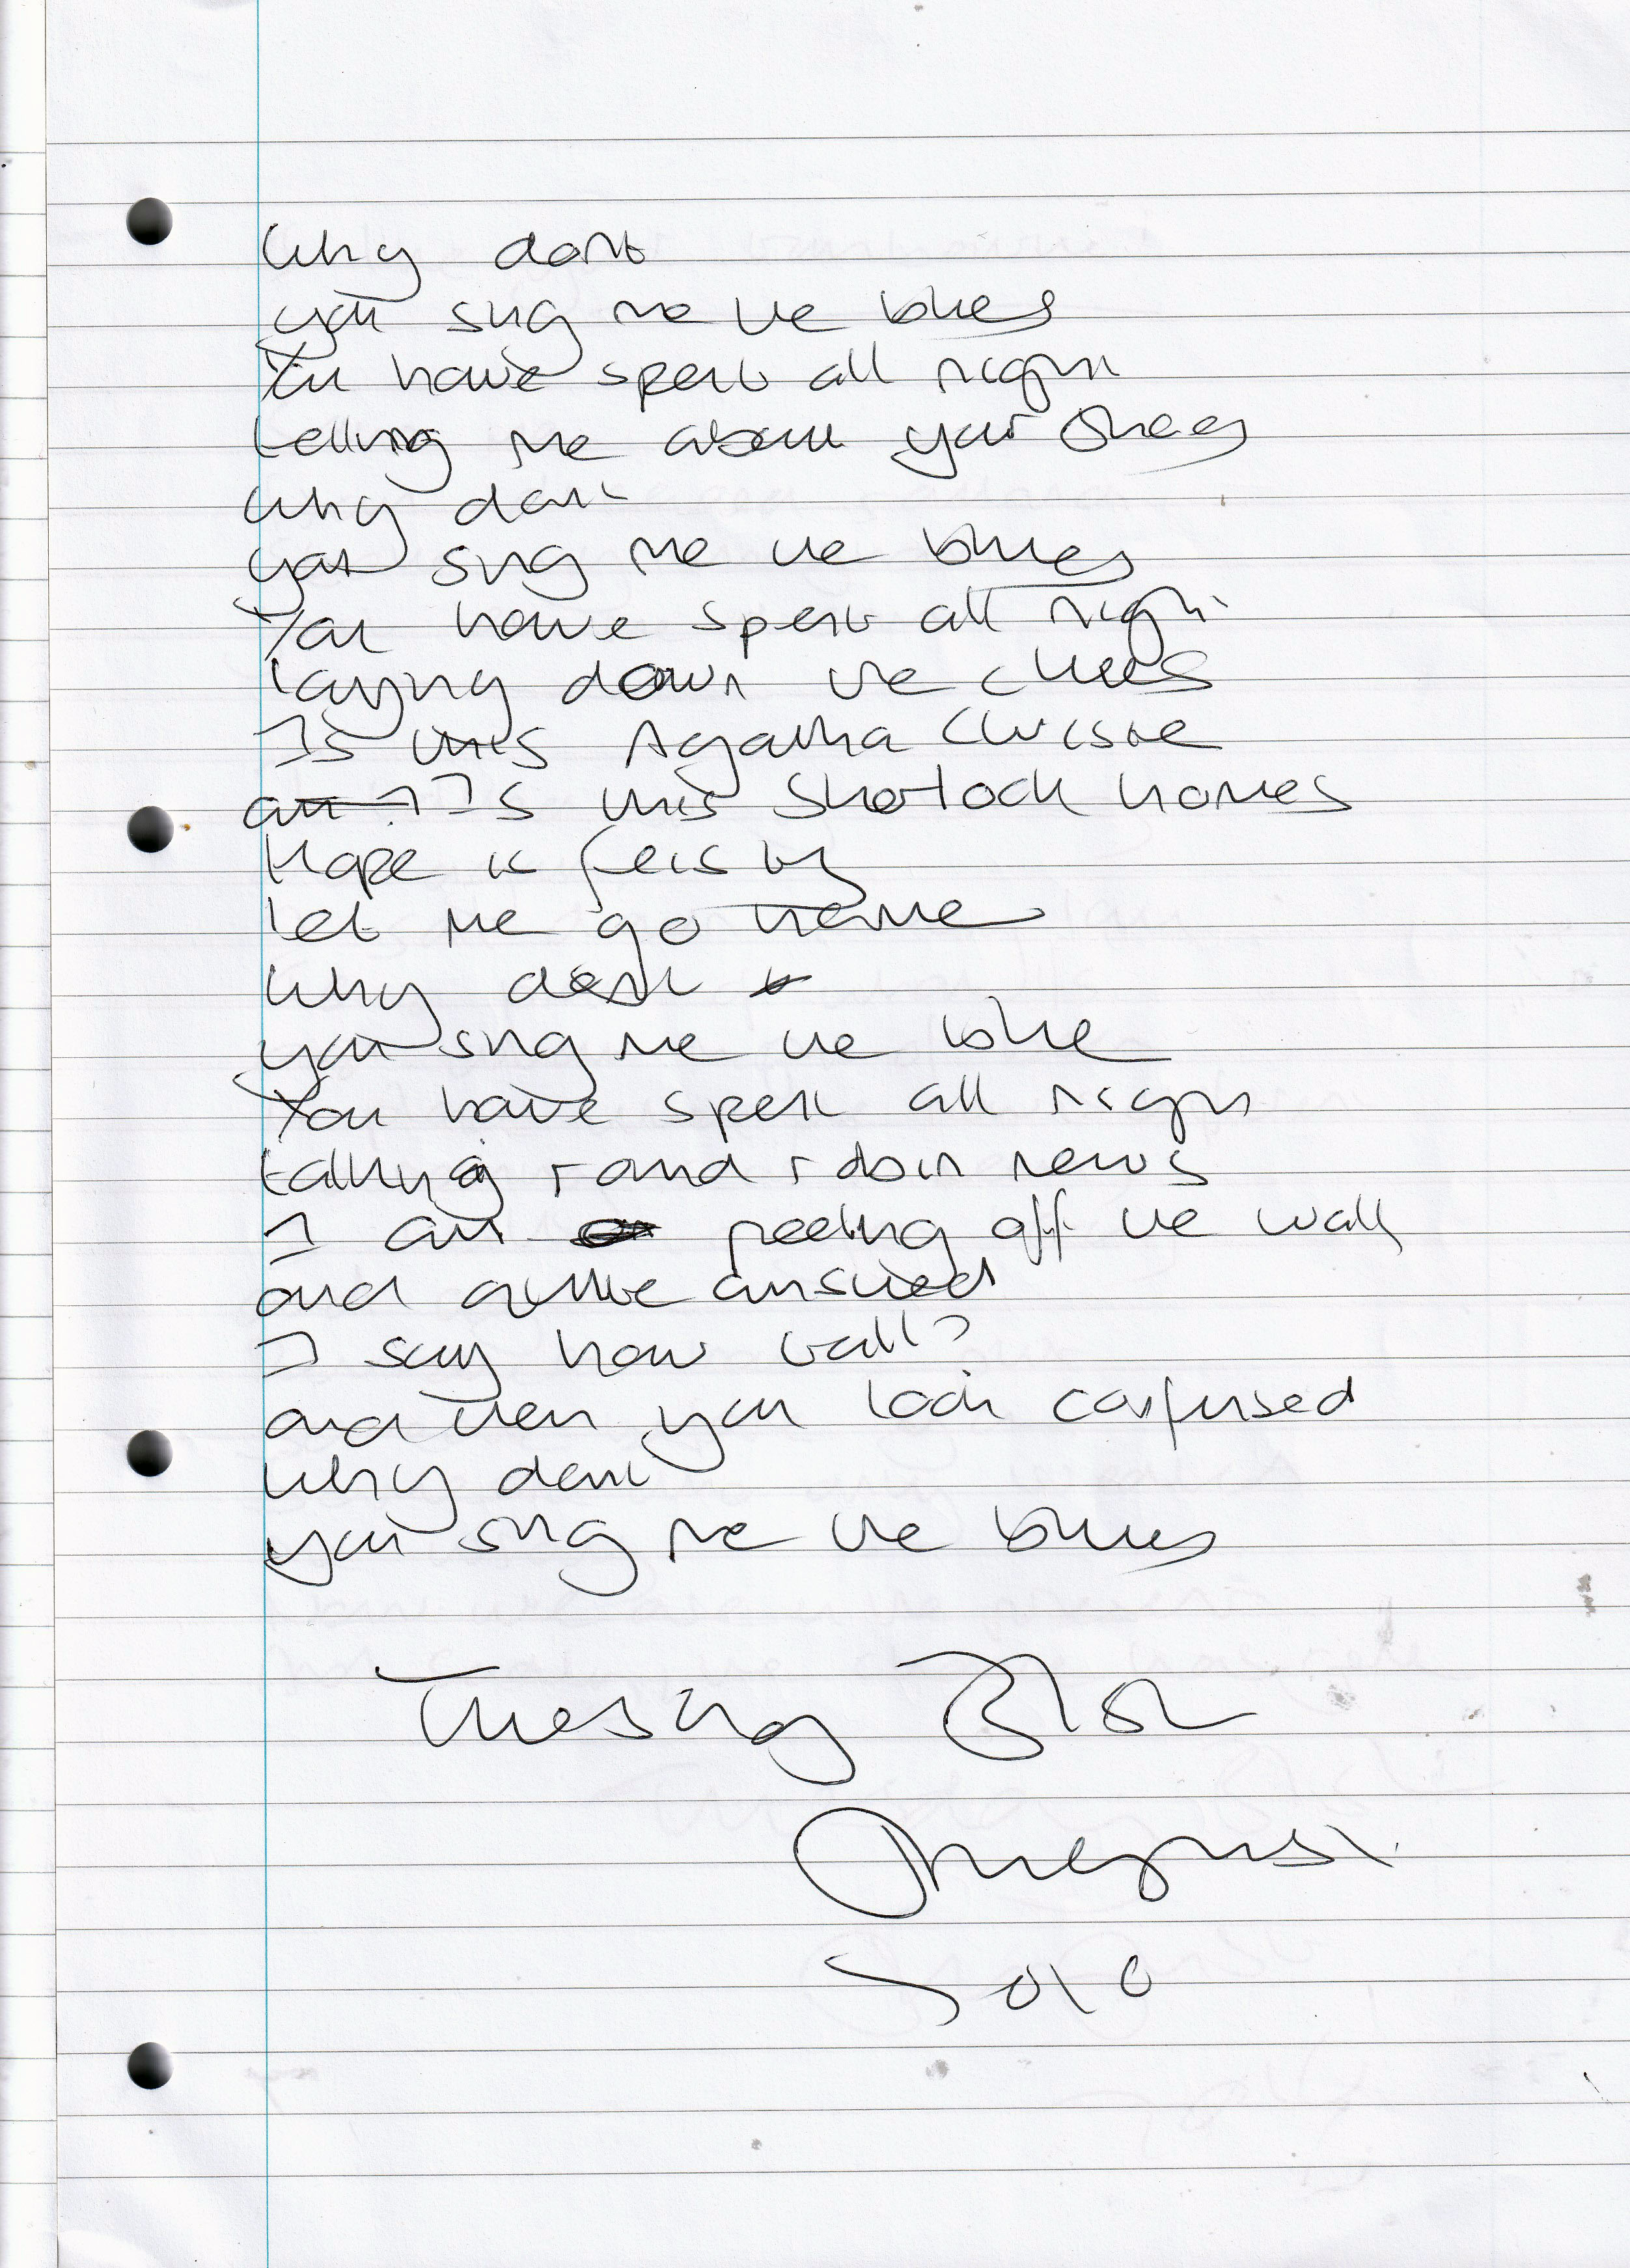 Why dont
you sing me the blues
You have spent all night
telling me about your shoes
why dont
you sing me the blues
You have spent all night
laying down the clues
Is this Agatha Christie
Is this Sherlock homes
Hope is feisty
let me go home
Why dont
you sing me the blue
You have spent all night
talking round robin news
I am peeling off the wall
and quite amused
I say how tall?
and then you look confused
Why dont
you sing me the blues